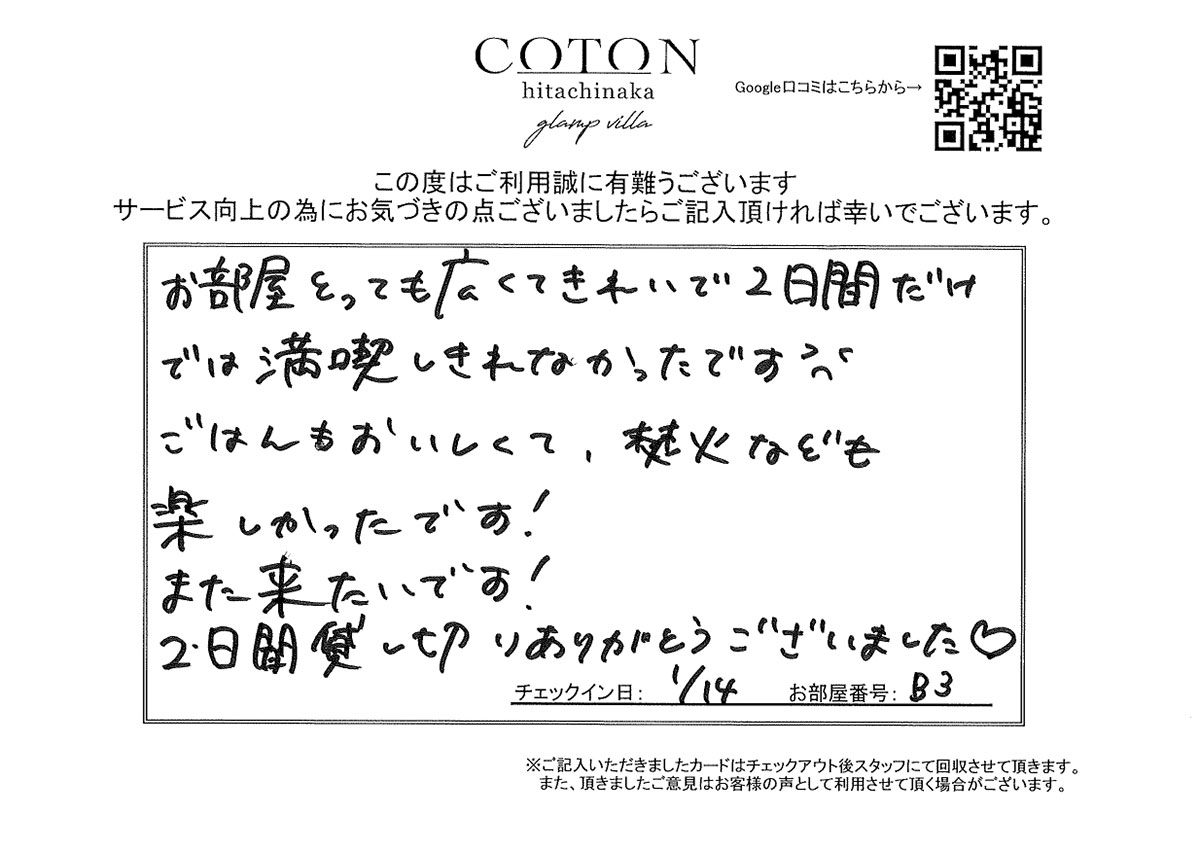 COTON
hitachinaka
glamp villa
Google口コミはこちらから→
この度はご利用誠に有難うございます
サービス向上の為にお気づきの点ございましたらご記入頂ければ幸いでございます。
お部屋とっても広くてきれいで2日間だけ
では満喫しきれなかったです
ごはんもおいしくて、焚火なども
楽しかったです!
また来たいです!
2日間貸し切りありがとうございました♡
チェックイン日: 1/14 お部屋番号: B3
※ご記入いただきましたカードはチェックアウト後スタッフにて回収させて頂きます。
また、頂きましたご意見はお客様の声として利用させて頂く場合がございます。